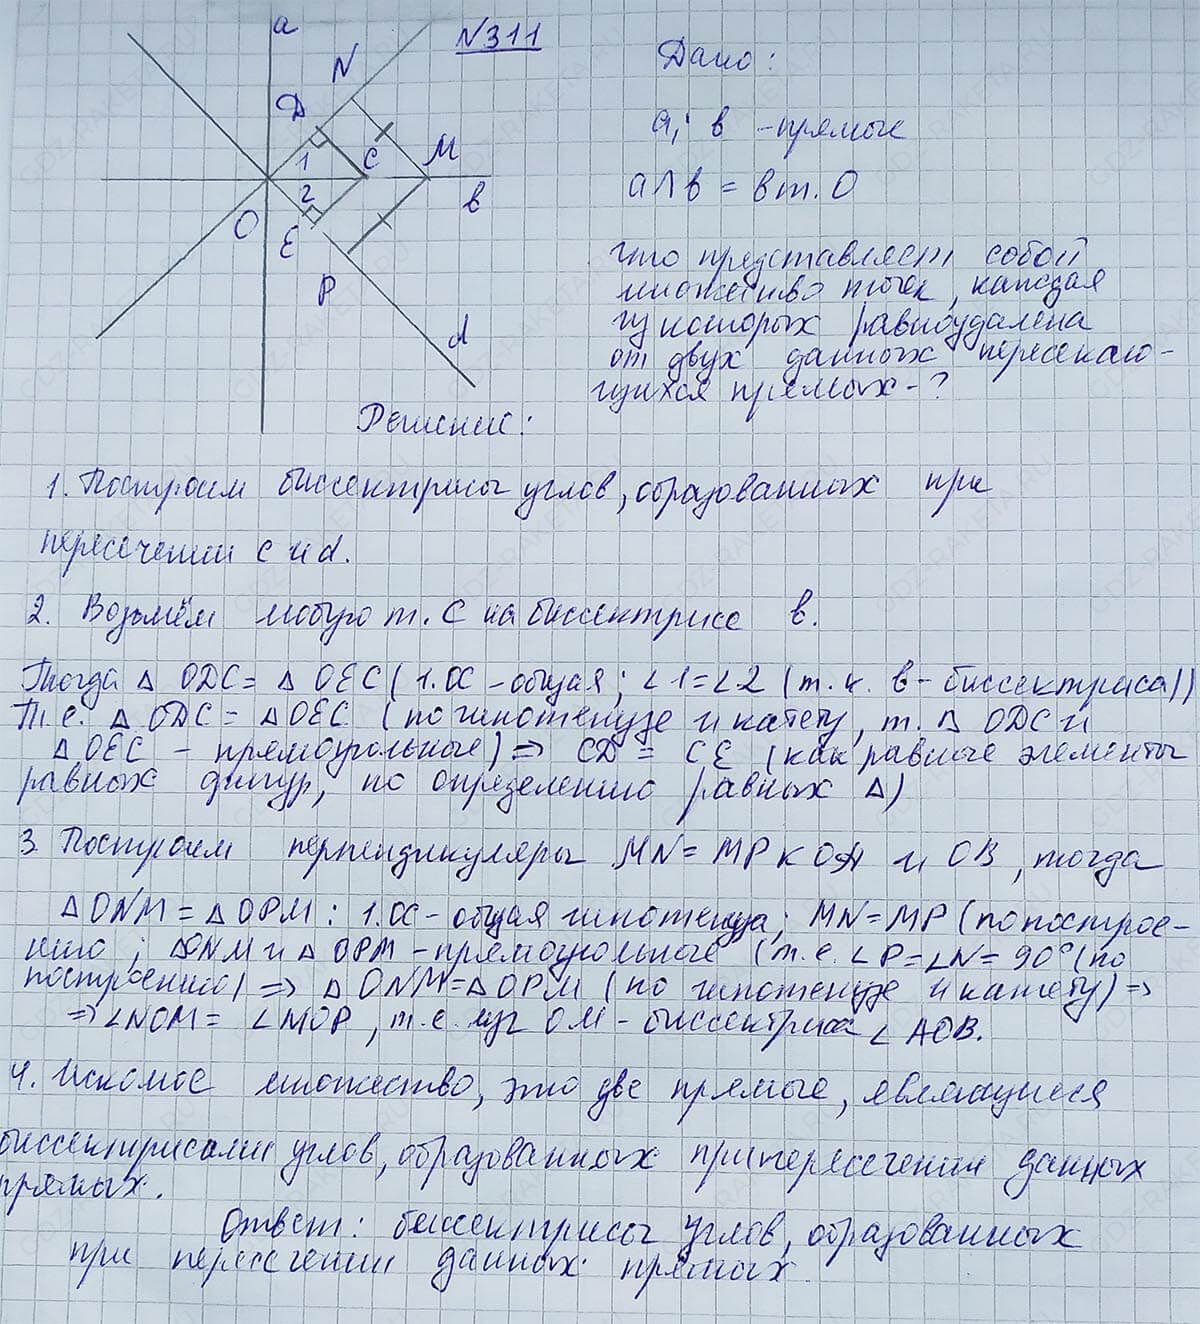 N311
a
N
D
1
C
M
2
в
O
E
P
d
Дано:
a, в - прямые
a∩в = в т. О
что представляет собой
множество точек, каждая
из которых равноудалена
от двух данных пересекаю-
щихся прямых - ?
Решение:
1. Построим биссектрисы углов, образованных при
пересечении c и d.
2. Возьмём любую т. С на биссектрисе в.
Тогда △ ODC = △ OEC (1. ОС - общая; ∠1=∠2 (т.к. в - биссектриса))
т.е. △ ODC = △OEC (по гипотенузе и катету, т. △ ODC и
△OEC - прямоугольные) ⇒ CD = CE (как равные элементы
равных фигур, по определению равных △)
3. Построим перпендикуляры MN = MP к ОА и ОВ, тогда
△ONM = △OPM: 1. ОС - общая гипотенуза; MN=MP (по построе-
нию; △ONM и △ OPM - прямоугольные (т.е. ∠P=∠N= 90° (по
построению) ⇒ △ ONM=△OPM (по гипотенузе и катету) ⇒
⇒ ∠NOM = ∠MOP, т.е. луч ОМ - биссектриса ∠ AOB.
4. Искомое множество, это две прямые, являющиеся
биссектрисами углов, образованных при пересечении данных
прямых.
Ответ: биссектрисы углов, образованных
при пересечении данных прямых.
GDZ-RAKETA.RU